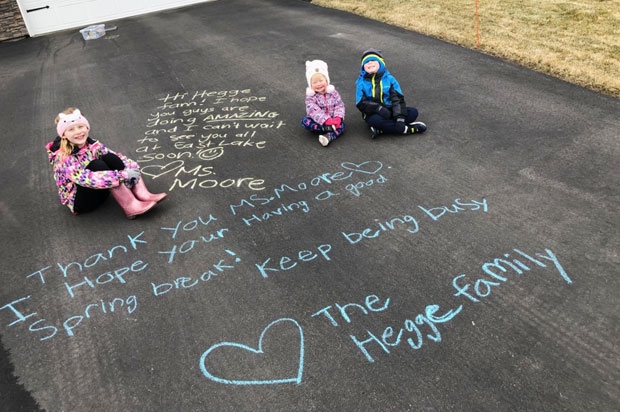 Hi Hegge
fam! I hope
you guys are
doing AMAZING
and I can't wait
to see you all
at East Lake
soon!
Ms.
Moore
Thank you Ms. Moore
I Hope your Having a good
Spring break! Keep being busy
The
Hegge family